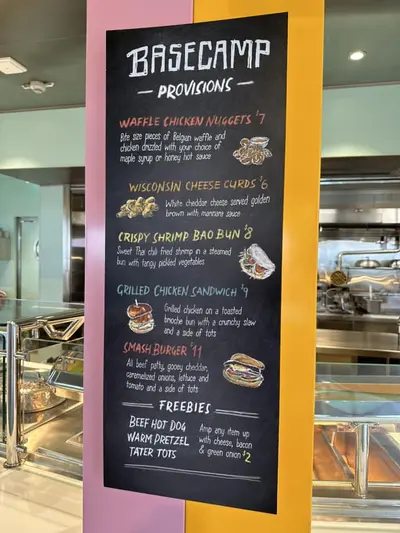 BASECAMP
PROVISIONS
WAFFLE CHICKEN NUGGETS $7
Bite size pieces of Belgian waffle and
chicken drizzled with your choice of
maple syrup or honey hot sauce
WISCONSIN CHEESE CURDS $6
White cheddar cheese served golden
brown with marinara sauce
CRISPY SHRIMP BAO BUN $8
Sweet Thai chili fried shrimp in a steamed
bun with tangy pickled vegetables
GRILLED CHICKEN SANDWICH $9
Grilled chicken on a toasted
brioche bun with a crunchy slaw
and a side of tots
SMASH BURGER $11
All beef patty, gooey cheddar,
caramelized onions, lettuce and
tomato and a side of tots
FREEBIES
BEEF HOT DOG
WARM PRETZEL
TATER TOTS
Amp any item up
with cheese, bacon
& green onion $2